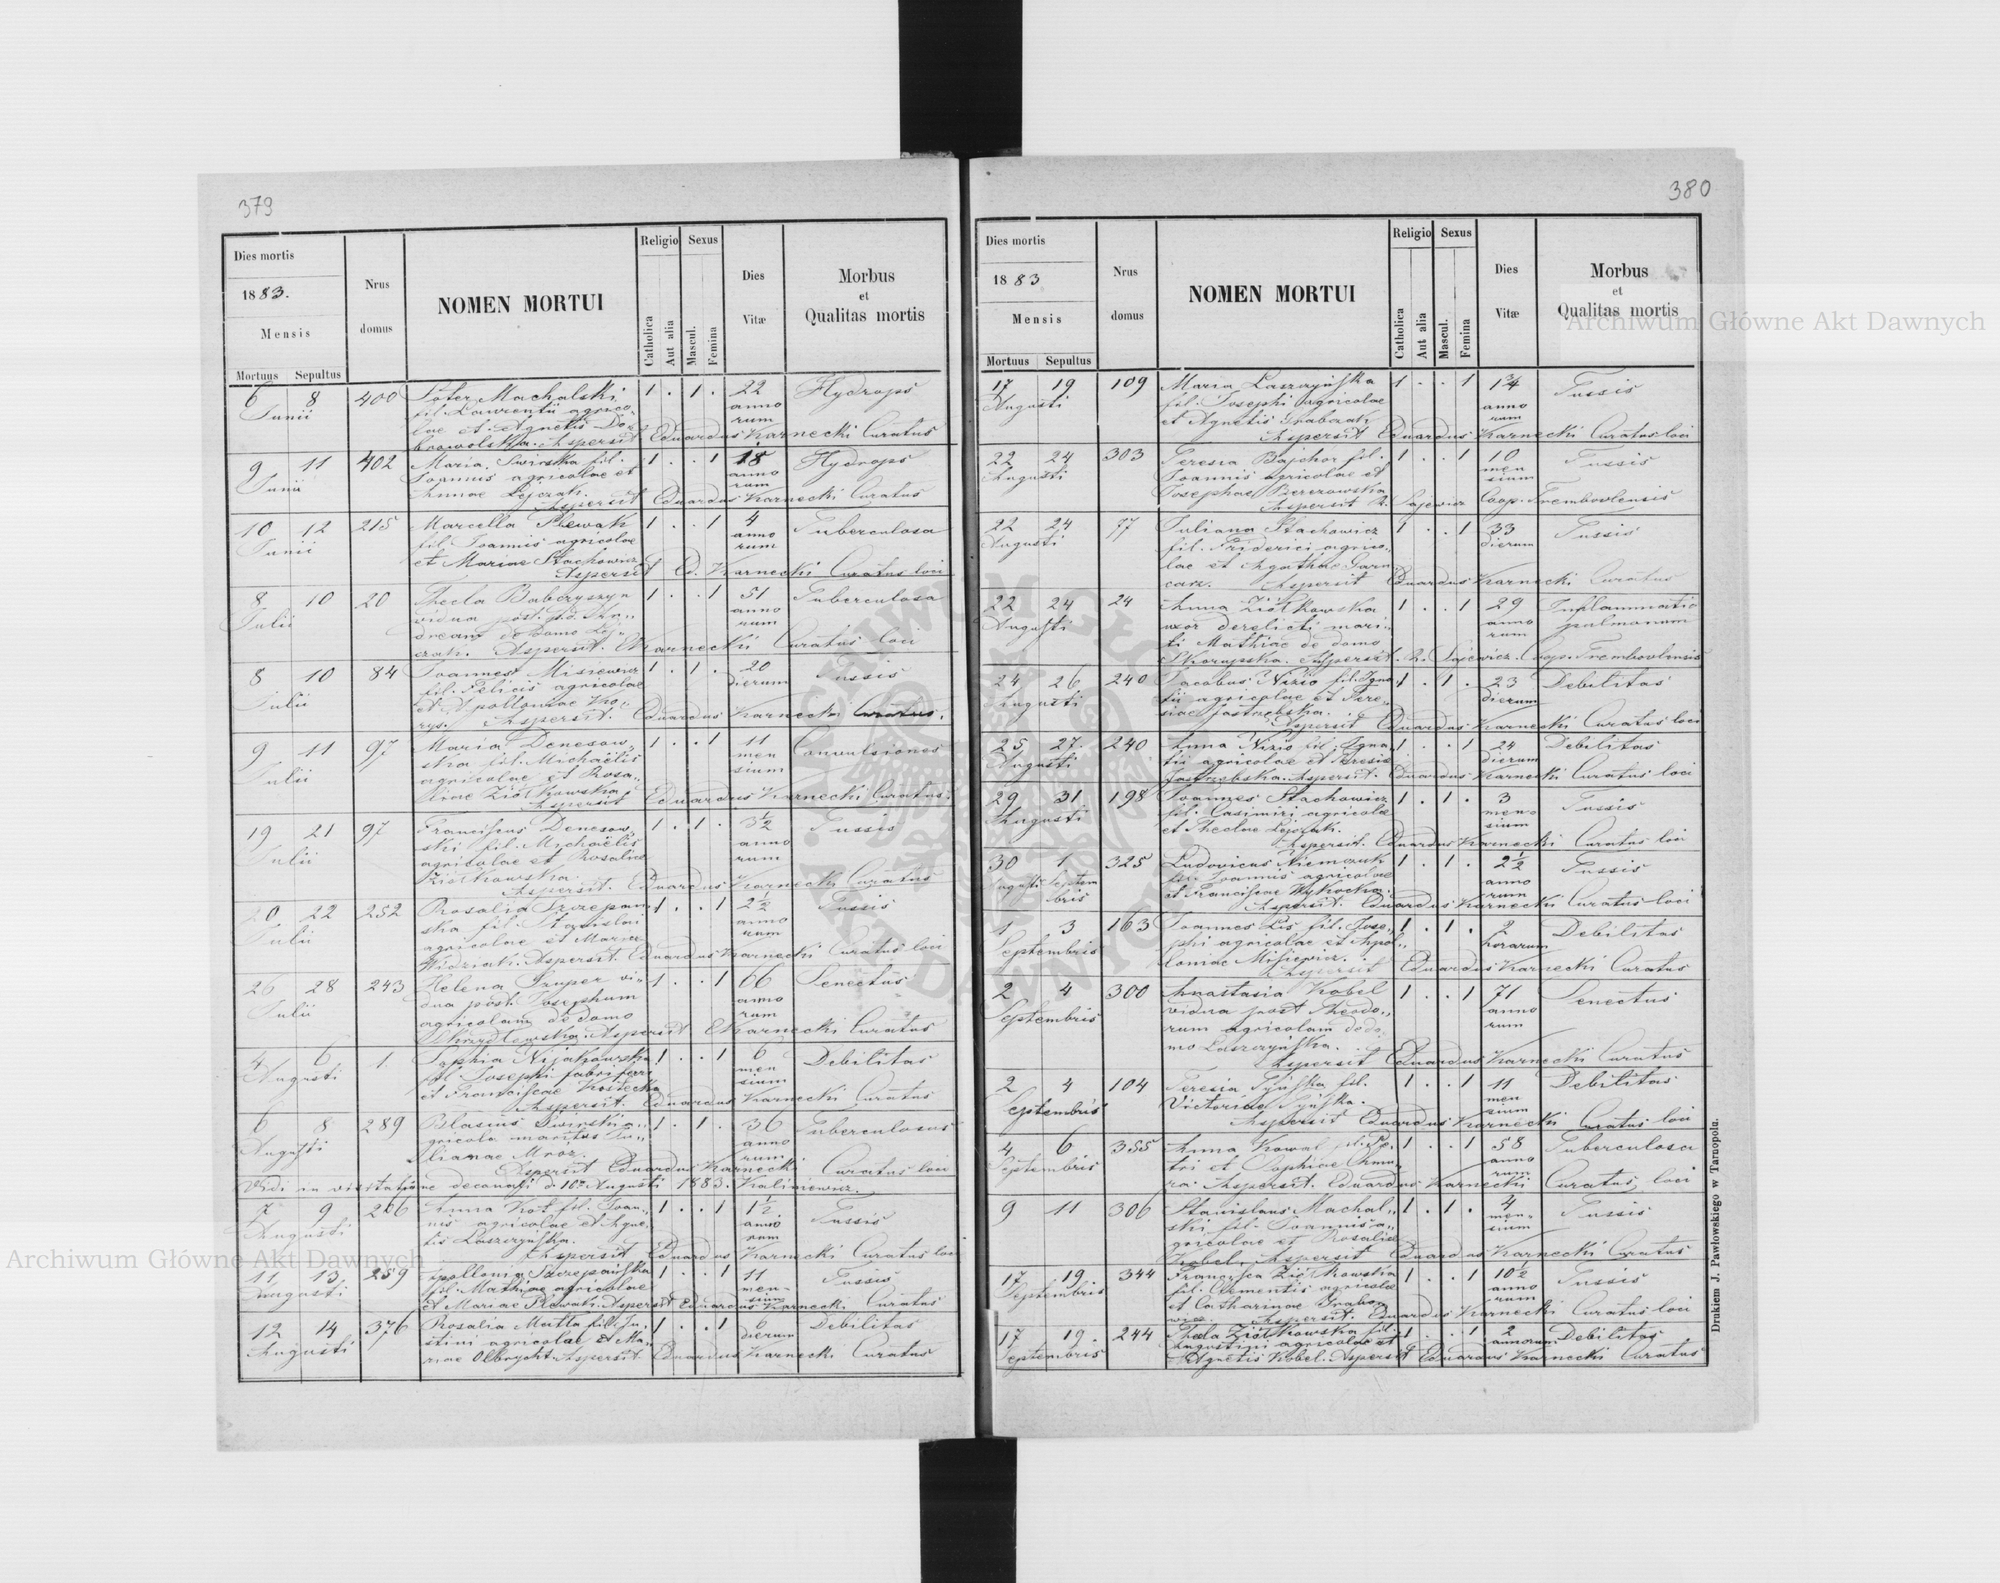 379
Dies mortis
1883.
Mensis
Mortuus Sepultus
Nrus
domus
NOMEN MORTUI
Religio
Catholica
Aut alia
Sexus
Mascul.
Femina
Dies
Vitæ
Morbus
et
Qualitas mortis
6 8 400 Peter Machalski 1 . 1 . 22 Hydrops
Junii fil. Laurentii agrico- anno
lae et Agnetis Do- rum
browolska. Aspersit Eduardus Karnecki Curatus
9 11 402 Maria Swirska fil. 1 . . 1 18 Hydrops
Junii Joannis agricolae et anno
Annae Lejczak. rum
Aspersit Eduardus Karnecki Curatus
10 12 215 Marcella Plewak 1 . . 1 4 Tuberculosa
Junii fil. Joannis agricolae anno
et Mariae Stachowicz rum
Aspersit E. Karnecki Curatus loci
8 10 20 Thecla Babczyszyn 1 . . 1 51 Tuberculosa
Julii vidua post p.d. An- anno
dream de domo Lej- rum
czak. Aspersit. E Karnecki Curatus loci
8 10 84 Joannes Misiewicz 1 . 1 . 20 Tussis
Julii fil. Felicis agricolae dierum
et Apolloniae Ko-
rys. Aspersit. Eduardus Karnecki Curatus.
9 11 97 Maria Denesow- 1 . . 1 11 Convulsiones
Julii ska fil. Michaëlis men
agricolae et Rosa- sium
liae Ziółkowska
Aspersit Eduardus Karnecki Curatus.
19 21 97 Franciscus Denesow- 1 . 1 . 3½ Tussis
Julii ski fil. Michaëlis anno
agricolae et Rosaliae rum
Ziółkowska.
Aspersit. Eduardus Karnecki Curatus
20 22 252 Rosalia Szczepan- 1 . . 1 2½ Tussis
Julii ska fil. Stanislai anno
agricolae et Mariae rum
Widziak. Aspersit. Eduardus Karnecki Curatus loci
26 28 243 Helena Szuper vi- 1 . . 1 66 Senectus
Julii dua post Josephum anno
agricolam de domo rum
Aspersit E Karnecki Curatus
4 6 1. Sophia Nijakowska 1 . . 1 6 Debilitas
Augusti fil. Josephi fabri ferri men
et Franciscae Kostecka sium
Aspersit. Eduardus Karnecki Curatus
6 8 289 Blasius Swirski a- 1 . 1 . 36 Tuberculosus
Augusti gricola maritus Ju- anno
lianae Mroz. rum
Aspersit Eduardus Karnecki Curatus loci
Vidi in visitatione decanali d. 10. Augusti 1883. Kaliniewicz.
7 9 226 Anna Kot fil. Joan- 1 . . 1 1½ Tussis
Augusti nis agricolae et Agne- anno
tis Laszczyńska. rum
Aspersit Eduardus Karnecki Curatus loci
11 13 259 Apollonia Szczepańska 1 . . 1 11 Tussis
Augusti fil. Mathiae agricolae men-
et Mariae Plewak. Aspersit Eduardus Karnecki Curatus
sium
12 14 376 Rosalia Matla fil. Ju- 1 . . 1 6 Debilitas
Augusti stini agricolae et Ma- dierum
riae Olbrycht. Aspersit. Eduardus Karnecki Curatus
380
Dies mortis
1883
Mensis
Mortuus Sepultus
Nrus
domus
NOMEN MORTUI
Religio
Catholica
Aut alia
Sexus
Mascul.
Femina
Dies
Vitæ
Morbus
et
Qualitas mortis
17 19 109 Maria Laszczyńska 1 . . 1 1¾ Tussis
Augusti fil. Josephi agricolae anno
et Agnetis Grabczak rum
Aspersit Eduardus Karnecki Curatus loci
22 24 303 Teresia Bajchor fil. 1 . . 1 10 Tussis
Augusti Joannis agricolae et men
Josephae Berezowska sium
Aspersit R. Sajewicz Coop. Trembovlensis
22 24 77 Juliana Stachowicz 1 . . 1 33 Tussis
Augusti fil. Friderici agrico- dierum
lae et Agathae Garn-
carz. Aspersit Eduardus Karnecki Curatus
22 24 24 Anna Ziółkowska 1 . . 1 29 Inflammatio
Augusti uxor derelicti mari- anno pulmonum
ti Mathiae de domo rum
Skorupska. Aspersit. R. Sajewicz. Coop. Trembovlensis
24 26 240 Jacobus Nizio fil. Igna- 1 . 1 . 23 Debilitas
Augusti tii agricolae et Tere- dierum
siae Jastrzebska.
Aspersit Eduardus Karnecki Curatus loci
25 27. 240 Anna Nizio fil. Igna- 1 . . 1 24 Debilitas
Augusti tii agricolae et Teresiae dierum
Jastrzebska. Aspersit. Eduardus Karnecki Curatus loci
29 31 198 Joannes Stachowicz 1 . 1 . 3 Tussis
Augusti fil. Casimiri agricolae men-
et Theclae Lejczak. sium
Aspersit. Eduardus Karnecki Curatus loci
30 1 325 Ludovicus Niemczuk 1 . 1 . 2½ Tussis
Augusti Septem fil. Joannis agricolae anno
bris et Franciscae Wykocka. rum
Aspersit. Eduardus Karnecki Curatus loci
1 3 163 Joannes Lis fil. Jose- 1 . 1 . 2 Debilitas
Septembris phi agricolae et Apol- horarum
loniae Misiewicz.
Aspersit Eduardus Karnecki Curatus
2 4 300 Anastasia Kobel 1 . . 1 71 Senectus
Septembris vidua post Theodo- anno
rum agricolam de do- rum
mo Laszczyńska.
Aspersit Eduardus Karnecki Curatus
2 4 104 Teresia fil. 1 . . 1 11 Debilitas
Septembris Victoriae men
sium
Aspersit Eduardus Karnecki Curatus loci
4 6 355 Anna Kowal fil. Pe- 1 . . 1 58 Tuberculosa
Septembris tri et Sophiae Chmu- anno
ra. Aspersit. Eduardus Karnecki Curatus loci
rum
9 11 306 Stanislaus Machal- 1 . 1 . 4 Tussis
ski fil. Joannis a- men-
gricolae et Rosaliae sium
Kobel. Aspersit Eduardus Karnecki Curatus
17 19 344 Francisca Ziółkowska 1 . . 1 10½ Tussis
Septembris fil. Clementis agricolae anno
et Catharinae Grabo- rum
wicz. Aspersit. Eduardus Karnecki Curatus loci
17 19. 244 Thecla Ziółkowska fil. 1 . . 1 2 Debilitas
Septembris Augustini agricolae et annorum
Agnetis Kobel. Aspersit Eduardus Karnecki Curatus
Drukiem J. Pawłowskiego w Tarnopolu.
Archiwum Główne Akt Dawnych
Archiwum Główne Akt Dawnych
ARCHIWUM GŁÓWNE AKT DAWNYCH